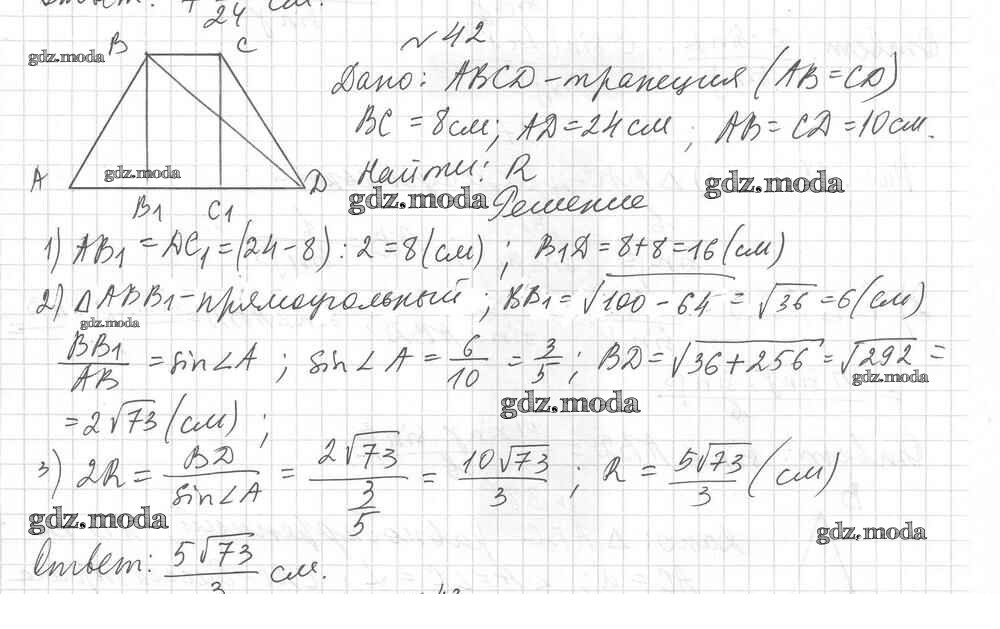 Ответ: 4 /24 см.
№42
B C
gdz.moda
Дано: ABCD - трапеция (AB = CD)
BC = 8 см; AD = 24 см; AB = CD = 10 см.
A gdz.moda D
Найти: R
gdz.moda gdz.moda
B1 C1
Решение
1) AB1 = DC1 = (24 - 8) : 2 = 8 (см); B1D = 8 + 8 = 16 (см)
2) △ABB1 - прямоугольный; BB1 = √100 - 64 = √36 = 6 (см)
gdz.moda
BB1/AB = sin∠A; sin∠A = 6/10 = 3/5; BD = √36 + 256 = √292 =
gdz.moda
gdz.moda
= 2√73 (см);
3) 2R = BD/sin∠A = 2√73/(3/5) = 10√73/3; R = 5√73/3 (см)
gdz.moda gdz.moda
Ответ: 5√73/3 см.